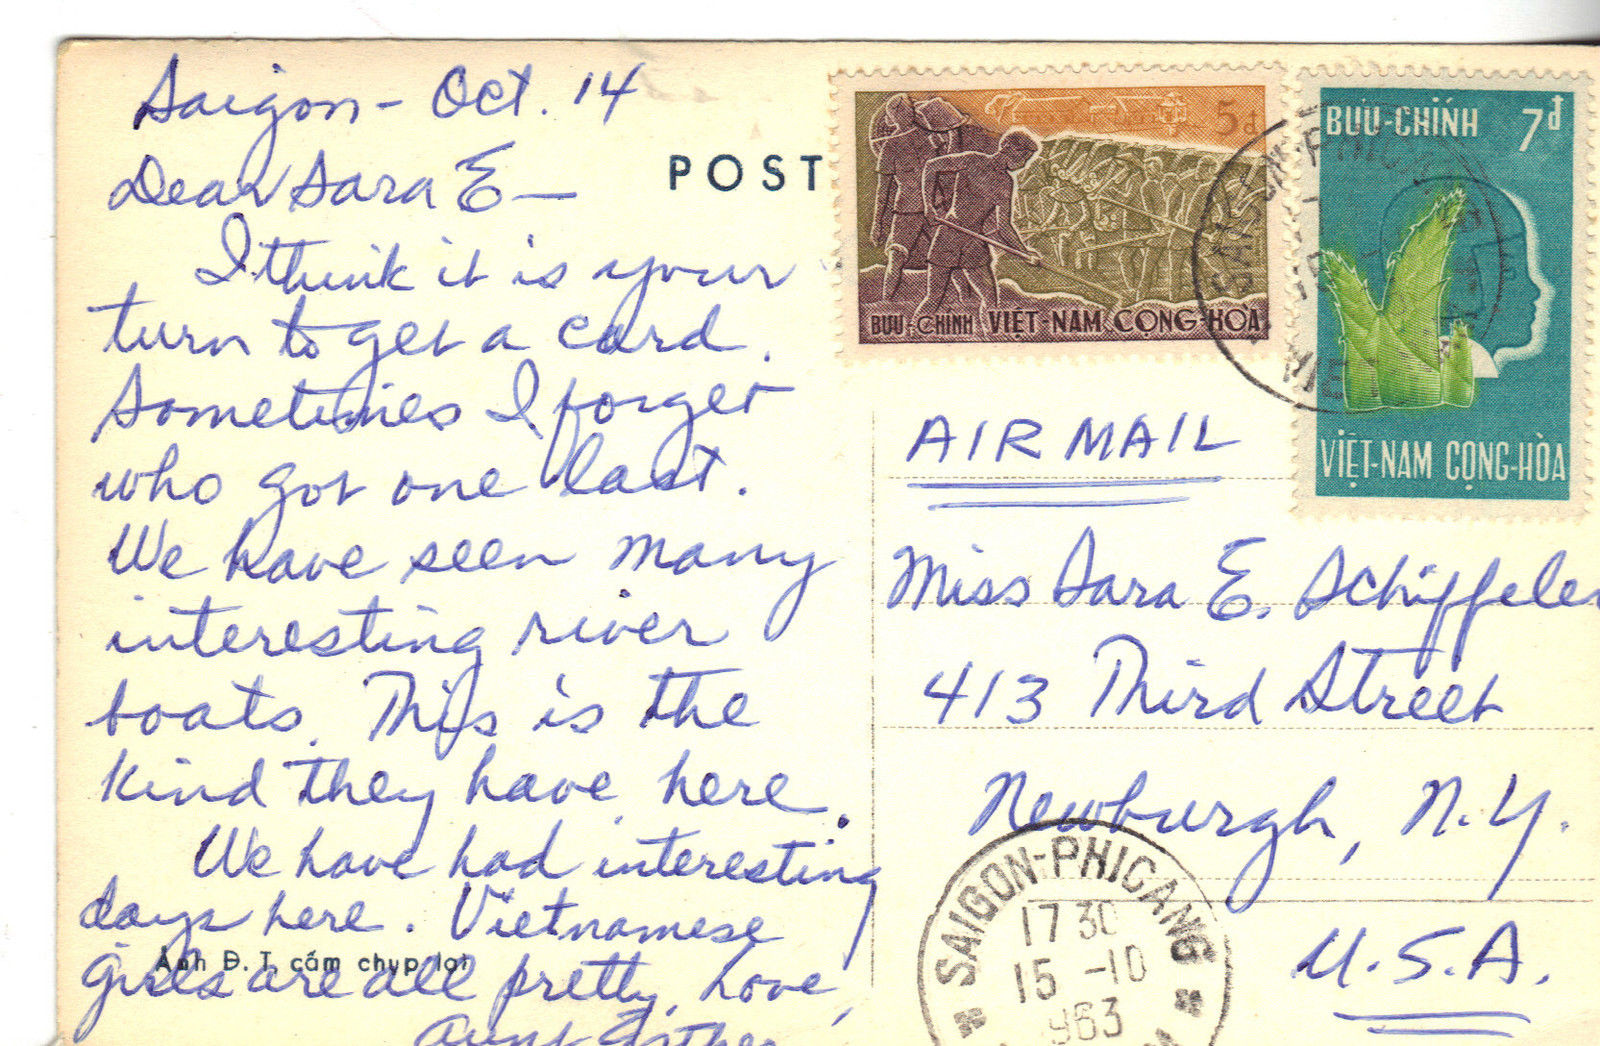 Saigon - Oct. 14
Dear Sara E —
I think it is your
turn to get a card.
Sometimes I forget
who got one last.
We have seen many
interesting river
boats. This is the
kind they have here.
We have had interesting
days here. Vietnamese
girls are all pretty. Love,
Aunt Esther
Ảnh Đ.T cấm chụp lại
POST
5đ
BƯU-CHÍNH VIỆT-NAM CỘNG-HÒA
BƯU-CHÍNH 7đ
VIỆT-NAM CỘNG-HÒA
AIR MAIL
Miss Sara E. Schiffeler
413 Third Street
Newburgh, N.Y.
U.S.A.
SAIGON-PHICANG
17 30
15 -10
1963